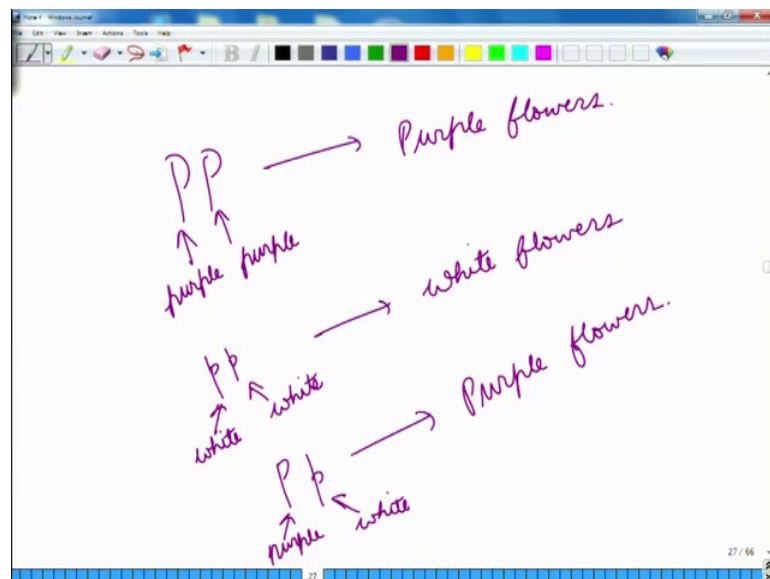 Note 4 - Windows Journal
File Edit View Insert Actions Tools Help
PP → Purple flowers.
purple purple
pp → white flowers
white white
Pp → Purple flowers.
purple white
27 / 66
27